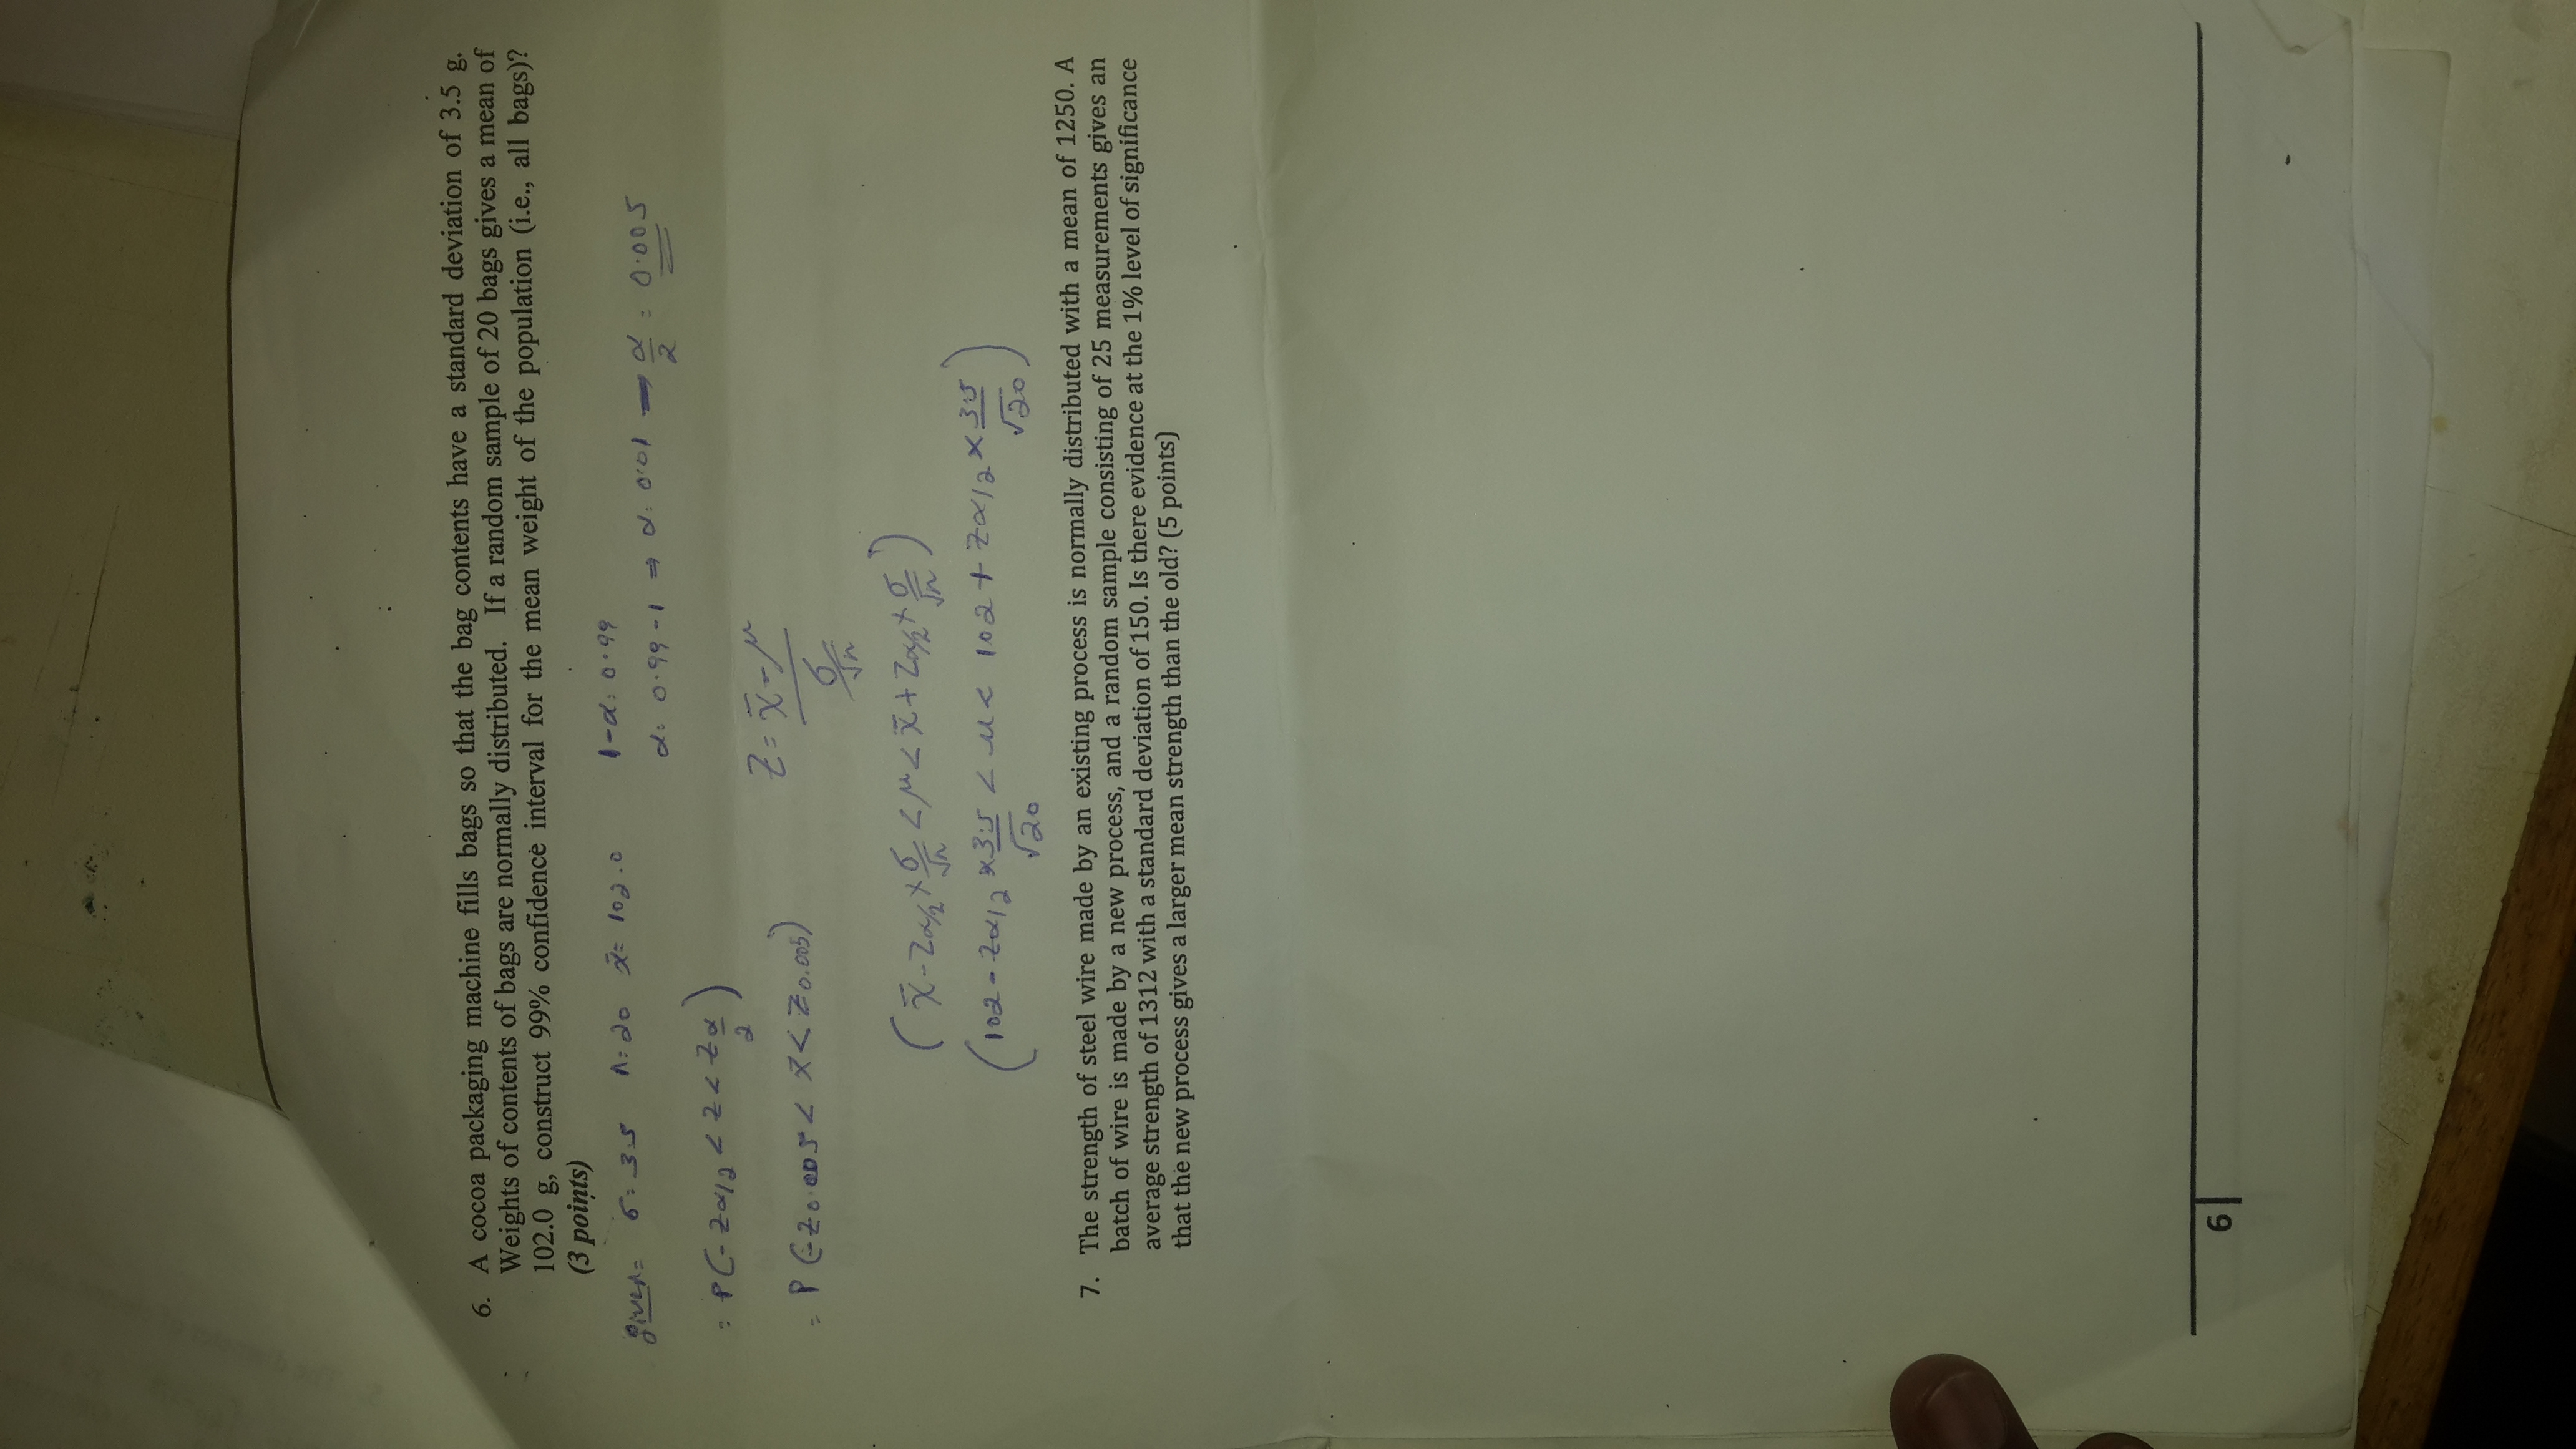 6. A cocoa packaging machine fills bags so that the bag contents have a standard deviation of 3.5 g.
Weights of contents of bags are normally distributed. If a random sample of 20 bags gives a mean of
102.0 g, construct 99% confidence interval for the mean weight of the population (i.e., all bags)?
(3 points)
given= σ= 3.5 n=20 x̄= 102.0 1-α= 0.99
α= 0.99-1 ⇒ α= 0.01 → α/2 = 0.005
= P(-Zα/2 < Z < Zα/2)
Z= x̄-μ / σ/√n
= P(-Z0.005 < Z < Z0.005)
(x̄-Zα/2 × σ/√n < μ < x̄+Zα/2 × σ/√n)
(102 - Zα/2 × 3.5/√20 < μ < 102 + Zα/2 × 3.5/√20)
7. The strength of steel wire made by an existing process is normally distributed with a mean of 1250. A
batch of wire is made by a new process, and a random sample consisting of 25 measurements gives an
average strength of 1312 with a standard deviation of 150. Is there evidence at the 1% level of significance
that the new process gives a larger mean strength than the old? (5 points)
6